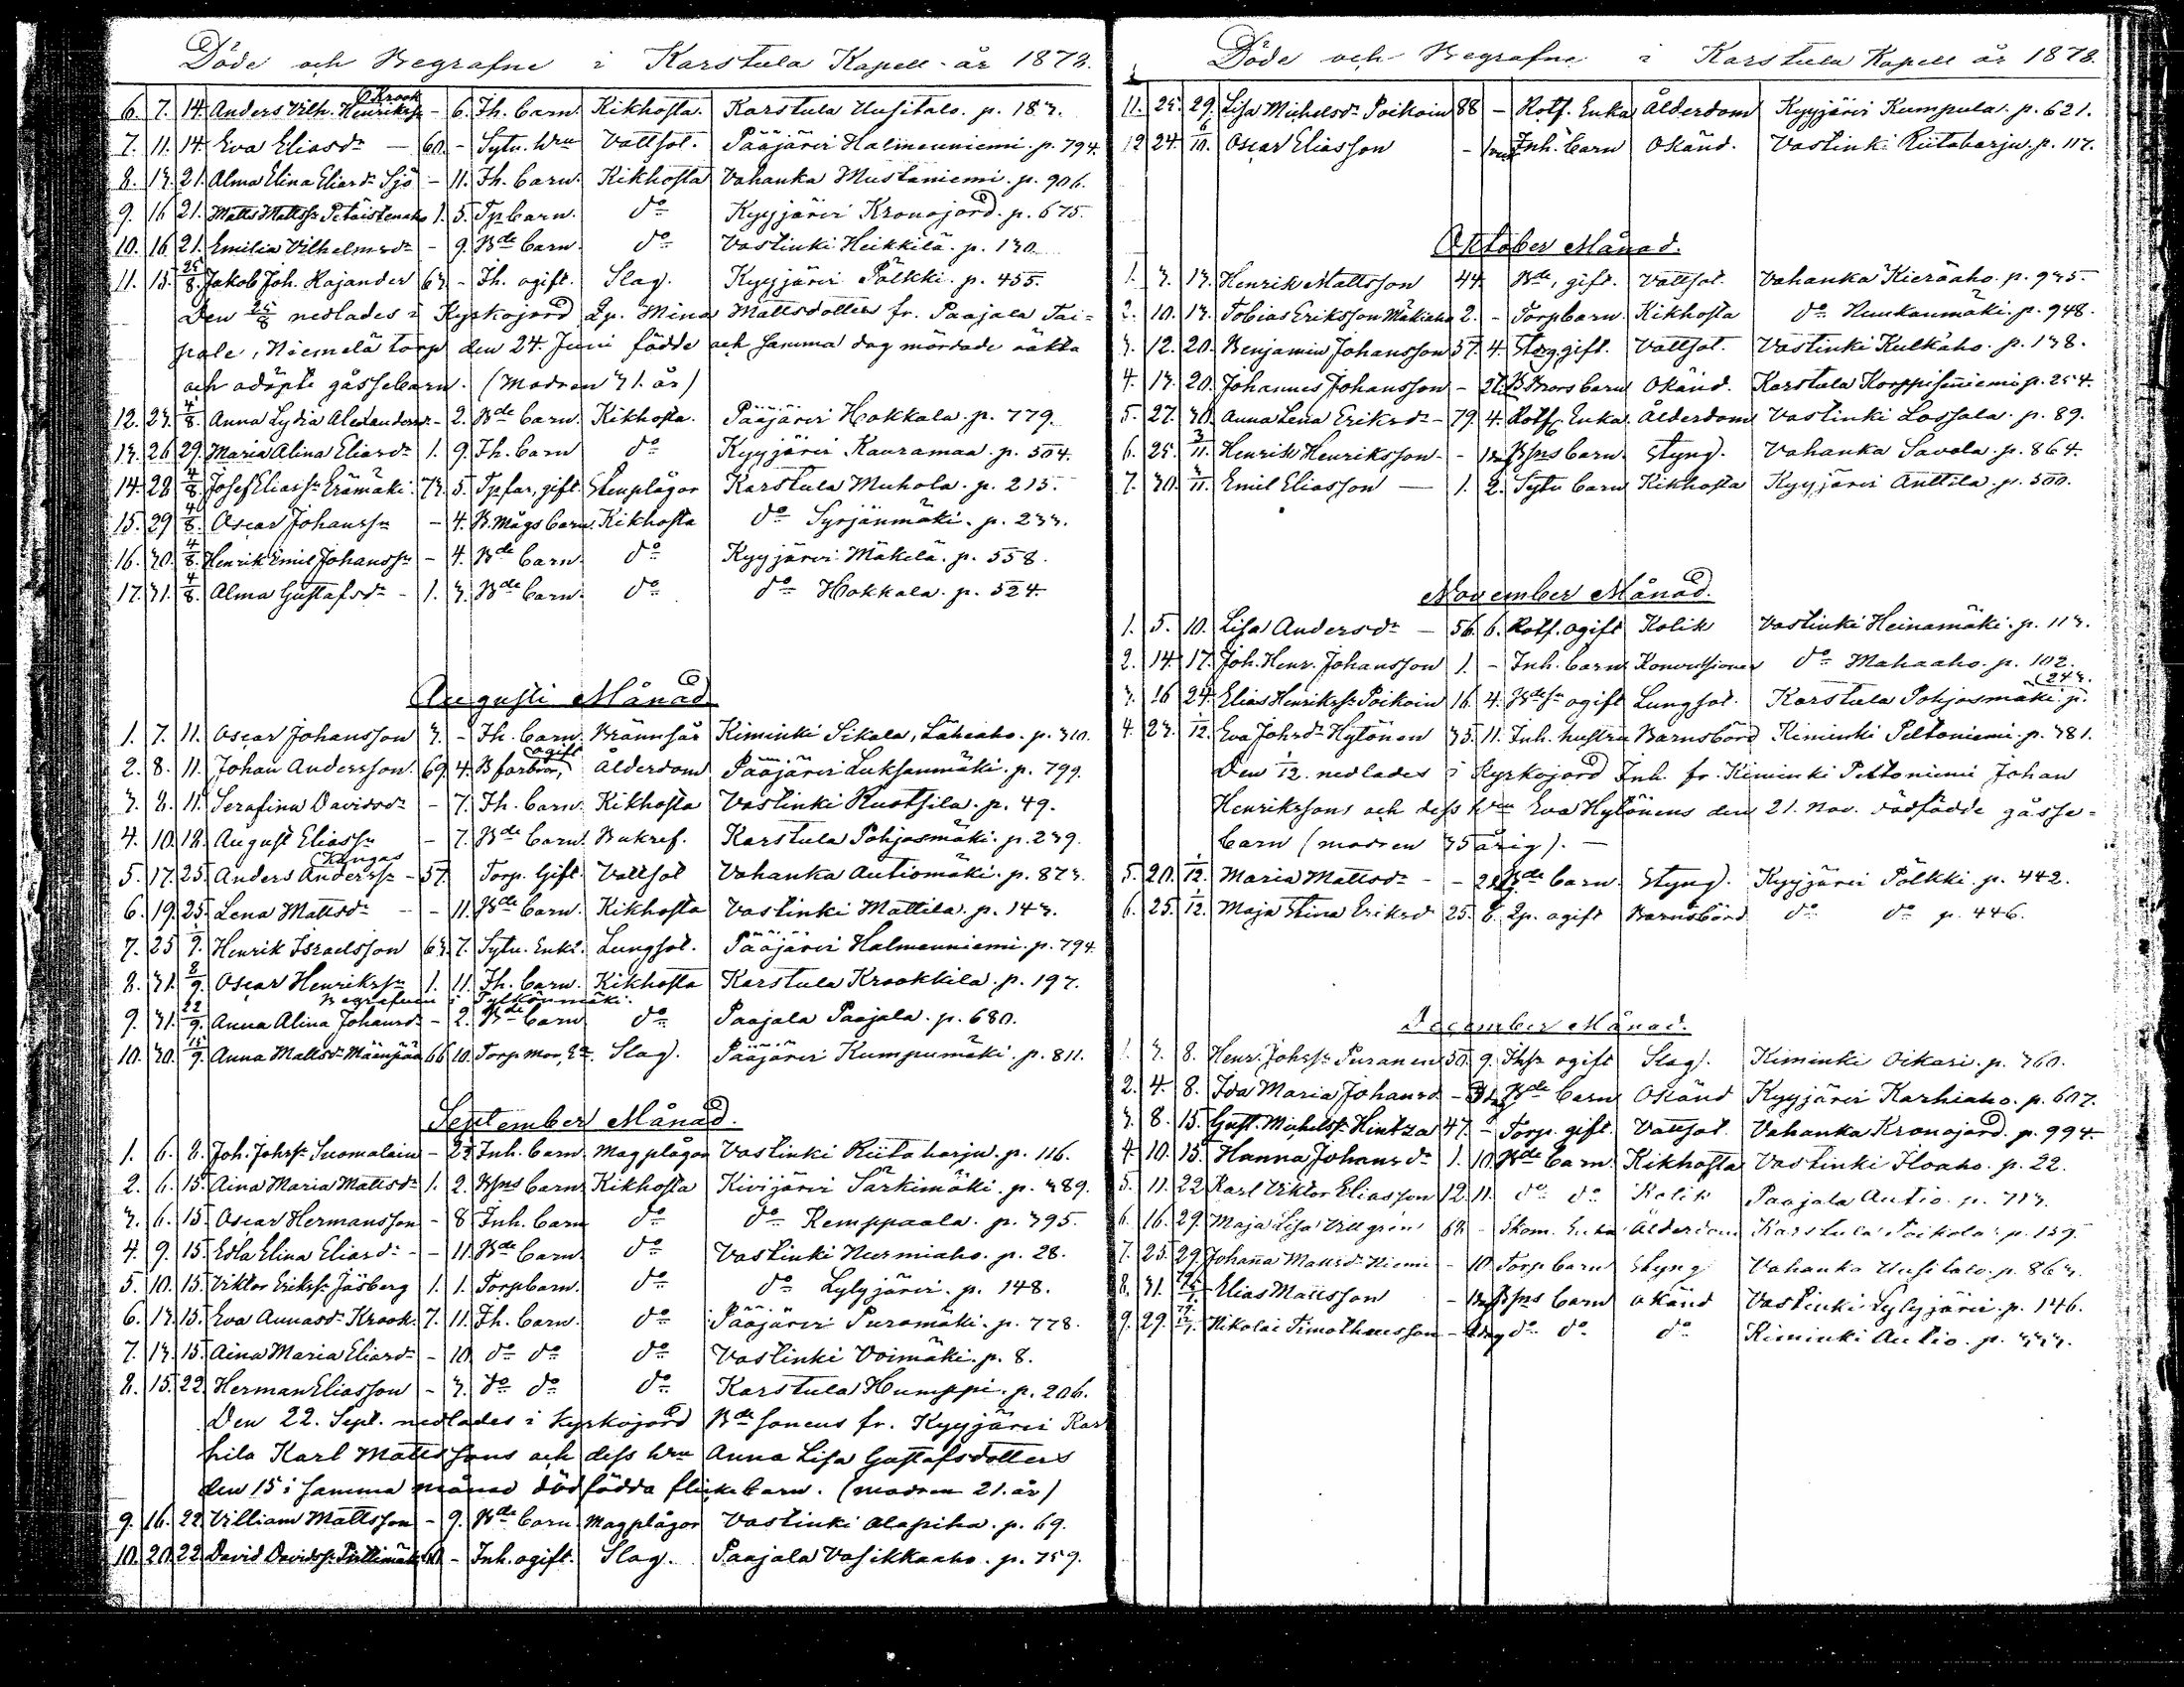 Döde och Begrafne i Karstula Kapell år 1873.
6. 7. 14. Anders Vilh. Henrikss Krook - 6. Ih. barn. Kikhosta. Karstula Uusitalo. p. 183.
7. 11. 14. Eva Eliasdr — 60. - Sytn. hru Vattsot. Pääjärvi Halmeuniemi. p. 794.
8. 13. 21. Alma Elina Eliasdr Sjö - 11. Ih. barn. Kikhosta Vahanka Mustaniemi. p. 906.
9. 16 21. Matts Mattss Petäistenaho 1. 5. Tp barn. do Kyyjärvi Kronojord. p. 675.
10. 16 21. Emilia Vilhelmsdr - 9. Bde barn. do Vastinki Heikkilä. p. 130.
11. 15. 25/8. Jakob Joh. Kajander 63. - Ih. ogift. Slag. Kyyjärvi Pölkki. p. 455.
Den 25/8 nedlades i Kyrkojord Pp. Mina Mattsdotters fr. Paajala Tai=
pale, Niemelä torp den 24. Juni födde och samma dag mördade oäkta
och odöpte gåssebarn. (Modren 31. år)
12. 23. 4/8. Anna Lydia Alexandersdr - 2. Bde barn. Kikhosta. Pääjärvi Hokkala. p. 779.
13. 26 29. Maria Alina Eliasdr 1. 9. Ih. barn do Kyyjärvi Kauramaa. p. 504.
14. 28 4/8 Josef Eliass Erämäki. 73. 5. Tpfar, gift. Stenplågor Karstula Muhola. p. 215.
15. 29 4/8. Oscar Johanss - 4. B. mågs barn. Kikhosta do Syrjänmäki. p. 233.
16. 30. 4/8. Henrik Emil Johanss - 4. Bde barn. do Kyyjärvi Mäkelä. p. 558.
17. 31. 4/8. Alma Gustafsdr - 1. 3. Bde barn. do do Hokkala. p. 524.
Augusti Månad
1. 7. 11. Oscar Johansson 3. - Ih. barn. Brännsår Kiminki Sikala, Läheaho. p. 310.
2. 8. 11. Johan Andersson. 69. 4. B farbror, ogift Ålderdom Pääjärvi Luksanmäki. p. 799.
3. 8. 11. Serafina Davidsdr - 7. Ih. barn. Kikhosta Vastinki Rustsila. p. 49.
4. 10. 18. August Eliass - 7. Bde barn. Bukref. Karstula Pohjasmäki. p. 239.
5. 17. 25. Anders Anderss Kangas - 57. Torp. Gift. Vattsot Vahanka Autiomäki. p. 873.
6. 19. 25. Lena Mattsdr - - 11. Bde barn. Kikhosta Vastinki Mattila. p. 143.
7. 25 1/9. Henrik Israelsson 63. 7. Sytn. Enkl. Lungsot. Pääjärvi Halmeuniemi. p. 794.
8. 31. 8/9. Oscar Henrikss 1. 11. Ih. barn. Kikhosta Karstula Krookkila. p. 197.
Begrafven i Pylkönmäki.
9. 31. 22/9. Anna Alina Johansdr - 2. Bde barn do Paajala Paajala. p. 680.
10. 30. 15/9. Anna Mattsdr Määnpää 66 10. Torp mor, Ea Slag. Pääjärvi Kumpumäki. p. 811.
September Månad.
1. 6. 8. Joh. Johss Suomalain - 2½ Inh. barn Magplågor Vastinki Riitaharju. p. 116.
2. 6. 15. Aina Maria Mattsdr 1. 2. Bsns barn Kikhosta Kivijärvi Särkimäki. p. 389.
3. 6. 15. Oscar Hermansson - 8 Inh. barn do do Kemppaala. p. 395.
4. 9. 15. Edla Elina Eliasdr - - 11. Bde barn. do Vastinki Nurmiaho. p. 28.
5. 10. 15. Viktor Erikss Jäsberg 1. 1. Torpbarn. do do Lylyjärvi. p. 148.
6. 13. 15. Eva Annasdr Krook. 7. 11. Ih. barn. do Pääjärvi Puromäki. p. 778.
7. 13. 15. Aina Maria Eliasdr - 10. do do do Vastinki Voimäki. p. 8.
8. 15. 22. Herman Eliasson - 3. do do do Karstula Humppi. p. 206.
Den 22. Sept. nedlades i kyrkojord Bde sonens fr. Kyyjärvi Kar
hila Karl Mattssons och dess hru Anna Lisa Gustafsdotters
den 15 i samma månad dödfödda flickebarn. (modren 21. år)
9. 16. 22. Villiam Mattsson - 9. Bde barn. Magplågor Vastinki Alapiha. p. 69.
10. 20. 22. David Davidss Pirttimäki 60. - Inh. ogift. Slag. Paajala Vasikkaaho. p. 759.
Döde och Begrafne i Karstula Kapell år 1873.
11. 25. 29. Lisa Michelsdr Poikoin 88 - Rotf. Enka Ålderdom Kyyjärvi Kumpula. p. 621.
12 24. 6/10. Oscar Eliasson - Inh. barn Okänd. Vastinki Riitaharju. p. 117.
Oktober Månad.
1. 3. 13. Henrik Mattsson 44. Bde, gift. Vattsot. Vahanka Kieräaho. p. 935.
2. 10. 13. Tobias Eriksson Mäkiaho 2. - Torpbarn. Kikhosta do Huukanmäki. p. 948.
3. 12. 20. Benjamin Johansson 57. 4. Torp. gift. Vattsot. Vastinki Kulkaho. p. 138.
4. 13. 20. Johannes Johansson - B Brors barn Okänd. Karstula Korppisniemi p. 254.
5. 27. 30. Anna Lena Eriksdr - 79. 4. Rotf. Enka. Ålderdom Vastinki Lassala. p. 89.
6. 25. 3/11. Henrik Henriksson - - Bsns barn Styng. Vahanka Savola. p. 864.
7. 30. 3/11. Emil Eliasson — 1. 2. Sytn barn Kikhosta Kyyjärvi Anttila. p. 500.
November Månad.
1. 5. 10. Lisa Andersdr — 56. 6. Rotf. ogift Kolik Vastinki Heinamäki. p. 113.
2. 14. 17. Joh. Henr. Johansson 1. - Inh. barn Konvulsioner do Mahaaho. p. 102.
3. 16 24. Elias Henrikss Poikoin 16. 4. Bdes ogift Lungsot. Karstula Pohjosmäki p. 243.
4. 23. 1/12. Eva Johsdr Hytönen 35. 11. Inh. hustru Barnsbörd Kiminki Peltoniemi. p. 381.
Den 1/12. nedlades i Kyrkojord Inh. fr. Kiminki Peltoniemi Johan
Henrikssons och dess hru Eva Hytönens den 21. Nov. dödfödde gåsse=
barn (modren 35 årig). —
5. 20. 1/12. Maria Mattsdr - - Bde barn. Styng. Kyyjärvi Pölkki. p. 442.
6. 25. 1/12. Maja Stina Eriksd 25. 8. Pp. ogift Barnsbörd do do p. 446.
December Månad.
1. 3. 8. Henr. Johss Puranen 50. 9. Ihs ogift Slag. Kiminki Oikari. p. 360.
2. 4. 8. Ida Maria Johansd - Bde barn Okänd Kyyjärvi Karhiaho. p. 607.
3. 8. 15. Gust. Michelss Hintza 47. - Torp. gift. Vattsot. Vahanka Kronojord. p. 994.
4. 10. 15. Hanna Johansdr 1. 10 Bde barn. Kikhosta Vastinki Iloaho. p. 22.
5. 11. 22 Karl Viktor Eliasson 12. 11. do do Kolik Paajala Autio. p. 713.
6. 16. 29. Maja Lisa Villgrén 68 - Skom. Enka Ålderdom Karstula Poikola. p. 159.
7. 25. 29. Johanna Mattsdr Niemi - 10 Torp barn Styng Vahanka Uusitalo. p. 863.
8. 31. Elias Mattsson - Bsns barn okänd Vastinki Lylyjärvi. p. 146.
9. 29. Nikolai Timotheusson - do do do Kiminki Autio. p. 333.